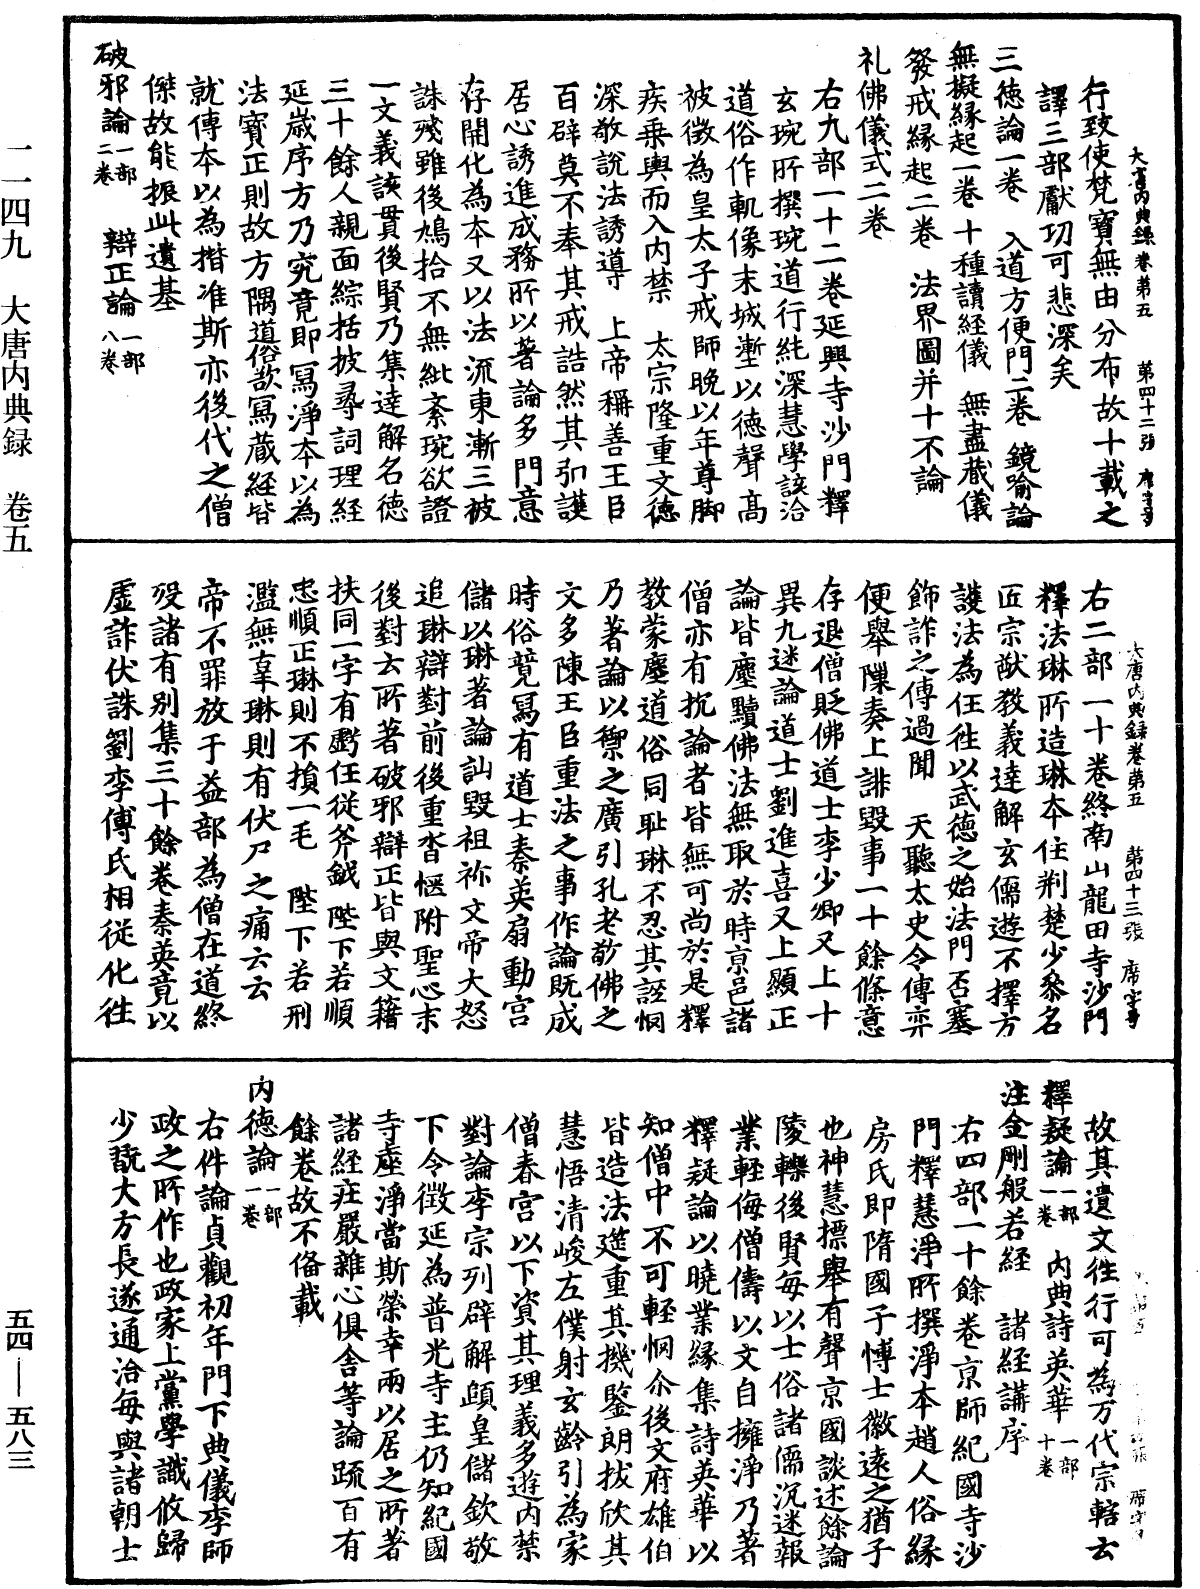 行致使梵寶無由分布故十載之
譯三部獻功可悲深矣
三德論一卷 入道方便門二卷 鏡喻論
無擬緣起一卷 十種讀經儀 無盡藏儀
發戒緣起二卷 法界圖并十不論
礼佛儀式二卷
右九部一十二卷延興寺沙門釋
玄琬所撰琬道行純深慧學該洽
道俗作軌像末城塹以德聲高
被徵為皇太子戒師晚以年尊脚
疾乗輿而入內禁 太宗隆重文德
深敬說法誘導 上帝稱善王臣
百辟莫不奉其戒誥然其弘護
居心誘進成務所以著論多門意
存開化為本又以法流東漸三被
誅殘雖後鳩拾不無紕紊琬欲證
一文義該貫後賢乃集達解名德
三十餘人親面綜括披尋詞理經
延歲序方乃究竟即寫淨本以為
法寶正則故方隅道俗欲寫藏經皆
就傳本以為揩准斯亦後代之僧
傑故能振此遺基
破邪論一部二卷 辯正論一部八卷
大唐內典錄卷第五 第四十二張
右二部一十卷終南山龍田寺沙門
釋法琳所造琳本住荊楚少叅名
匠宗猷教義達解玄儒遊不擇方
護法為任往以武德之始法門否塞
飾詐之傳過聞 天聽太史令傅弈
便舉陳奏上誹毀事一十餘條意
存退僧貶佛道士李少卿又上十
異九迷論道士劉進喜又上顯正
論皆塵黷佛法無取於時京邑諸
僧亦有抗論者皆無可尚於是釋
教蒙塵道俗同恥琳不忍其誣惘
乃著論以禦之廣引孔老敬佛之
文多陳王臣重法之事作論既成
時俗競寫有道士秦英扇動宮
儲以琳著論訕毀祖祢文帝大怒
追琳辯對前後重沓愜附聖心末
後對去所著破邪辯正皆與文籍
扶同一字有虧任從斧鉞 陛下若順
忠順正琳則不損一毛 陛下若刑
濫無辜琳則有伏尸之痛云云
帝不罪放于益部為僧在道終
殁諸有別集三十餘卷秦英竟以
虛詐伏誅劉李傅氏相從化往
大唐內典錄卷第五 第四十三張 席字号
故其遺文往行可為万代宗轄云
釋疑論一部一卷 內典詩英華一部十卷
注金剛般若經 諸經講序
右四部一十餘卷京師紀國寺沙
門釋慧淨所撰淨本趙人俗緣
房氏即隋國子博士徽遠之猶子
也神慧摽舉有聲京國談述餘論
陵轢後賢每以士俗諸儒沉迷報
業輕侮僧儔以文自擁淨乃著
釋疑論以曉業緣集詩英華以
知僧中不可輕惘尒後文府雄伯
皆造法筵重其機鑒朗拔欣其
慧悟清峻左僕射玄齡引為家
僧春宮以下資其理義多遊內禁
對論李宗列辟解頤皇儲欽敬
下令徵延為普光寺主仍知紀國
寺座淨當斯榮幸兩以居之所著
諸經疏莊嚴雜心俱舍等論疏百有
餘卷故不俻載
內德論一部一卷
右件論貞觀初年門下典儀李師
政之所作也政家上黨學識攸歸
少翫大方長遂通洽每與諸朝士
二一四九 大唐内典録 卷五
五四—五八三